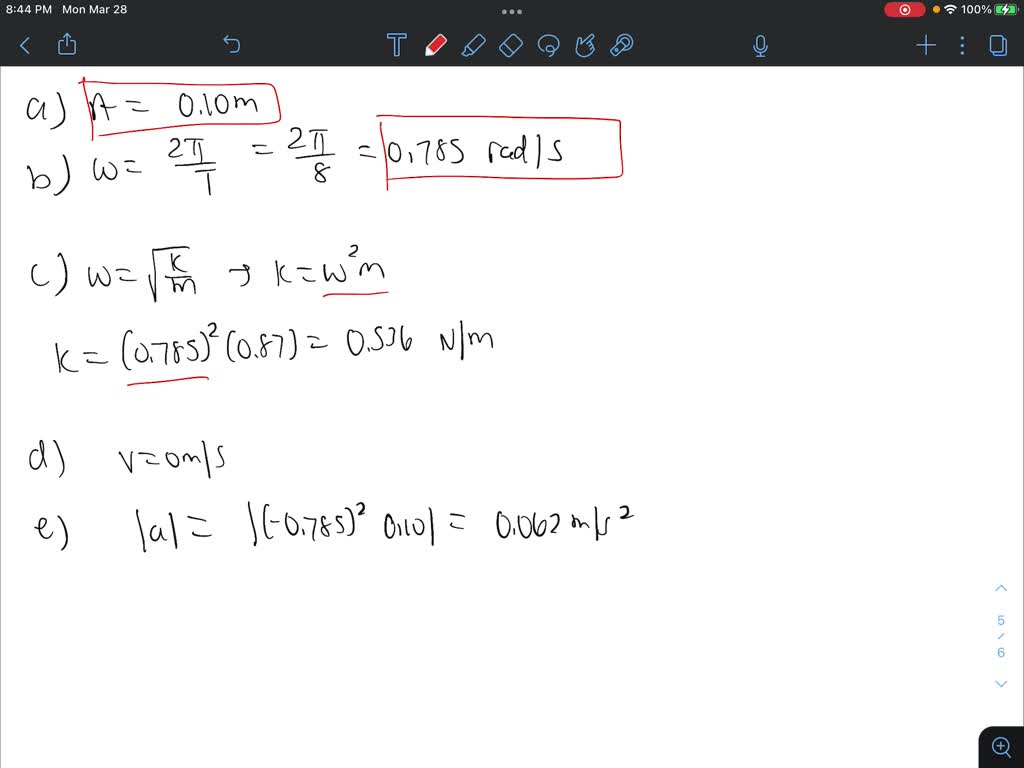 8:44 PM Mon Mar 28 100%
a) A = 0.10m
b) ω = 2π/T = 2π/8 = 0.785 rad/s
c) ω = √(k/m) → k = ω²m
k = (0.785)² (0.87) = 0.536 N/m
d) v = 0m/s
e) |a| = |(-0.785)² 0.10| = 0.062 m/s²
5
/
6